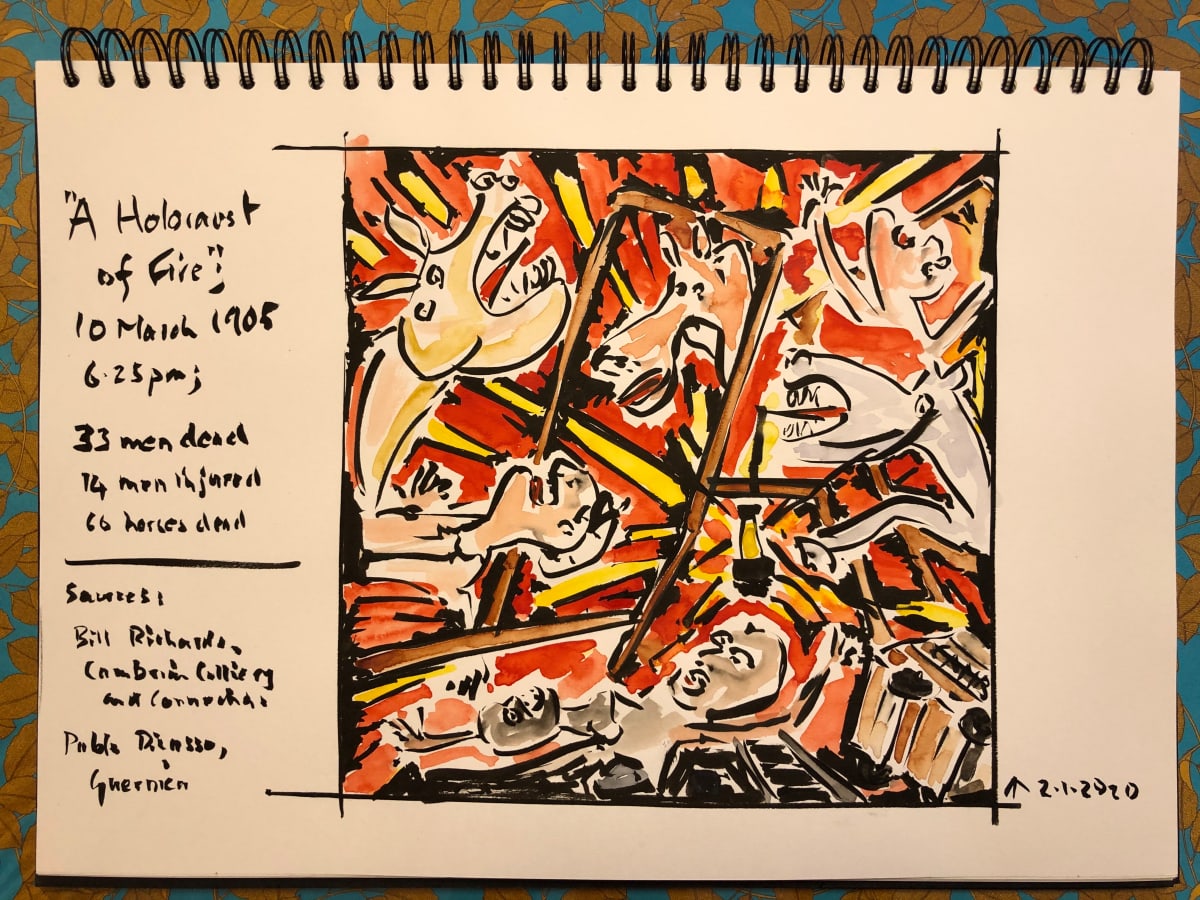 "A Holocaust
of Fire";
10 March 1905
6.25pm;
33 men dead
14 men injured
66 horses dead
Sources:
Bill Richards,
Cambrian Colliery
and
Pablo Picasso,
Guernica
CAMB
2.1.2020